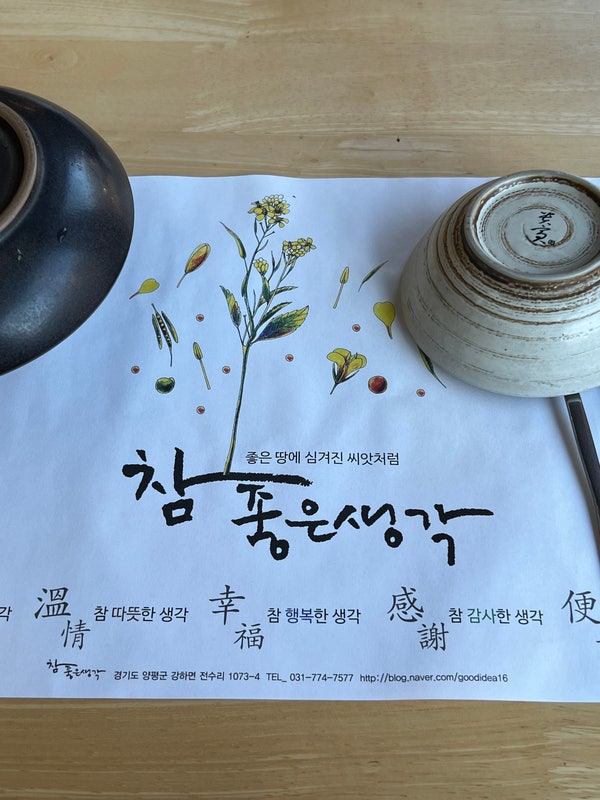 좋은 땅에 심겨진 씨앗처럼
참 좋은생각
각 溫情 참 따뜻한 생각 幸福 참 행복한 생각 感謝 참 감사한 생각 便
참 좋은생각 경기도 양평군 강하면 전수리 1073-4 TEL_ 031-774-7577 http://blog.naver.com/goodidea16